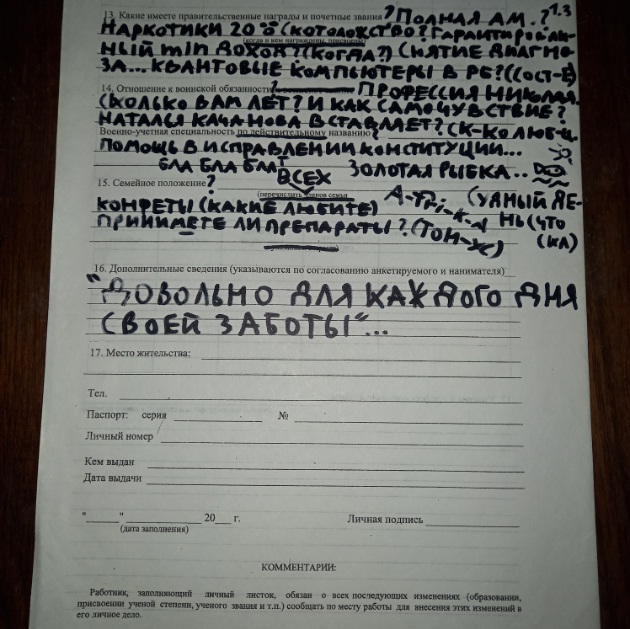 13. Какие имеете правительственные награды и почетные звания ? ПОЛНАЯ АМ. ? 1.3
НАРКОТИКИ 20 % (КОТОЛОЖСТВО? ГАРАНТИРОВАН-
НЫЙ min ДОХОД? (КОГДА?) (СНЯТИЕ ДИАГНО-
ЗА... КВАНТОВЫЕ КОМПЬЮТЕРЫ В РБ? (СОСТ-Е)
14. Отношение к воинской обязанности ? ПРОФЕССИЯ НИКОЛАЯ.
СКОЛЬКО ВАМ ЛЕТ? И КАК САМОЧУВСТВИЕ?
НАТАЛЬЯ КАЧАНОВА ВСТАВЛЯЕТ?
Военно-учетная специальность по действительному названию ?
ПОМОЩЬ В ИСПРАВЛЕНИИ КОНСТИТУЦИИ...
БЛА БЛА БЛА ЗОЛОТАЯ РЫБКА..
15. Семейное положение ? ВСЕХ
КОНФЕТЫ (КАКИЕ ЛЮБИТЕ) (УДНЫЙ ДЕ-
НЬ (ЧТО
ПРИНИМЕТЕ ЛИ ПРЕПАРАТЫ?
16. Дополнительные сведения (указываются по согласованию анкетируемого и нанимателя)
"ДОВОЛЬНО ДЛЯ КАЖДОГО ДНЯ
СВОЕЙ ЗАБОТЫ"...
17. Место жительства:
Тел.
Паспорт: серия №
Личный номер
Кем выдан
Дата выдачи
"     "     20   г. Личная подпись
(дата заполнения)
КОММЕНТАРИИ:
Работник, заполняющий личный листок, обязан о всех последующих изменениях (образовании,
присвоении ученой степени, ученого звания и т.п.) сообщать по месту работы для внесения этих изменений в
его личное дело.